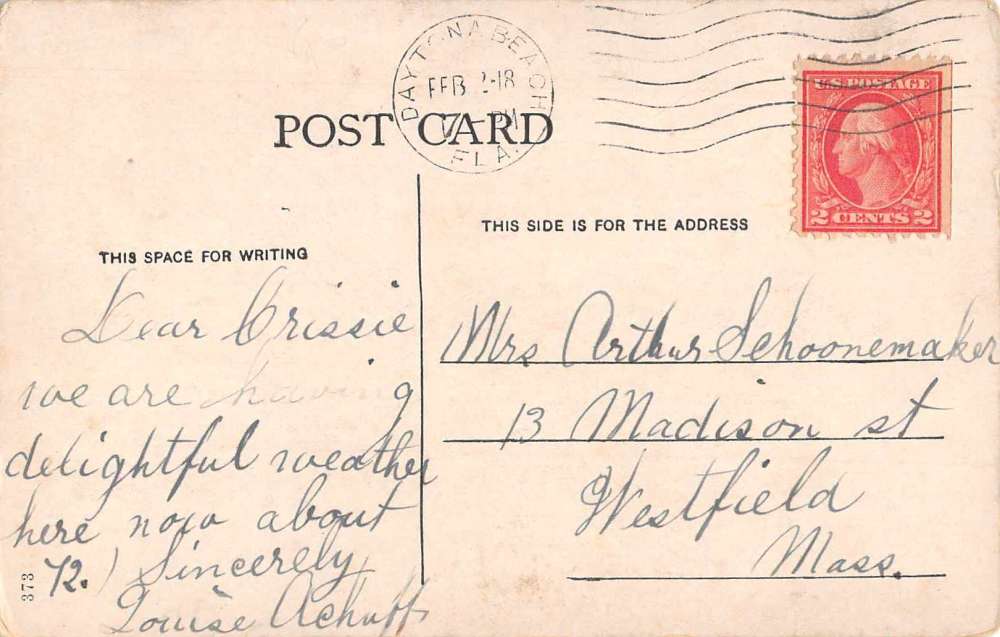 DAYTONA BEACH
FEB 2-18
7 - PM
FLA.
U.S. POSTAGE
2 CENTS 2
POST CARD
THIS SPACE FOR WRITING
THIS SIDE IS FOR THE ADDRESS
Dear Crissie
we are having
delightful weather
here now about
72.) Sincerely
Louise Achuff
373
Mrs Arthur Schoonemaker
13 Madison st
Westfield
Mass.